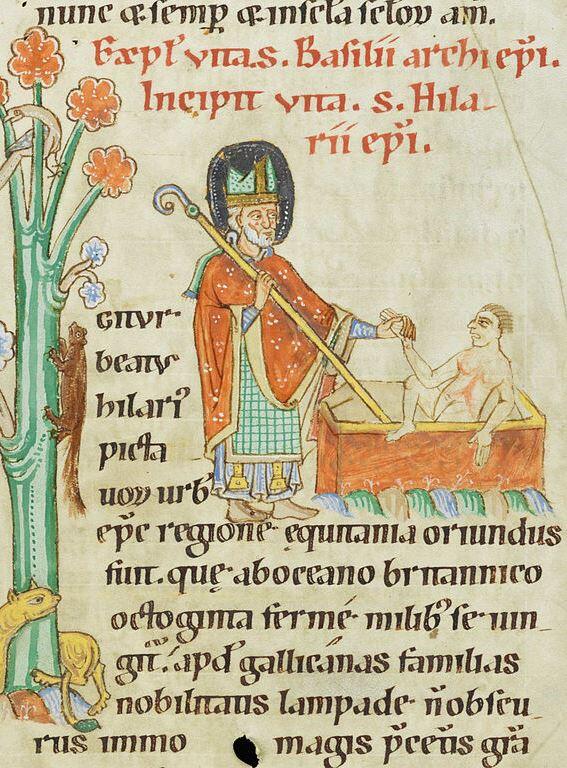 nunc & semp̱ & in scła scłoꝝ am̄.
Expł vita.s. Basilii archiep̄i.
Incipit vita. s. Hila-
rii ep̄i.
GITVR
beatus
hilari᾽
picta
uoꝝ urb᾽
ep̄c regione ęquitania oriundus
fuit. quę ab oceano britannico
octoginta fermé milib᾽ se uin-
git. apđ gallicánas familias
nobilitatis lampade n̄ obscu-
rus immo magis p̄ceťis gr̄a